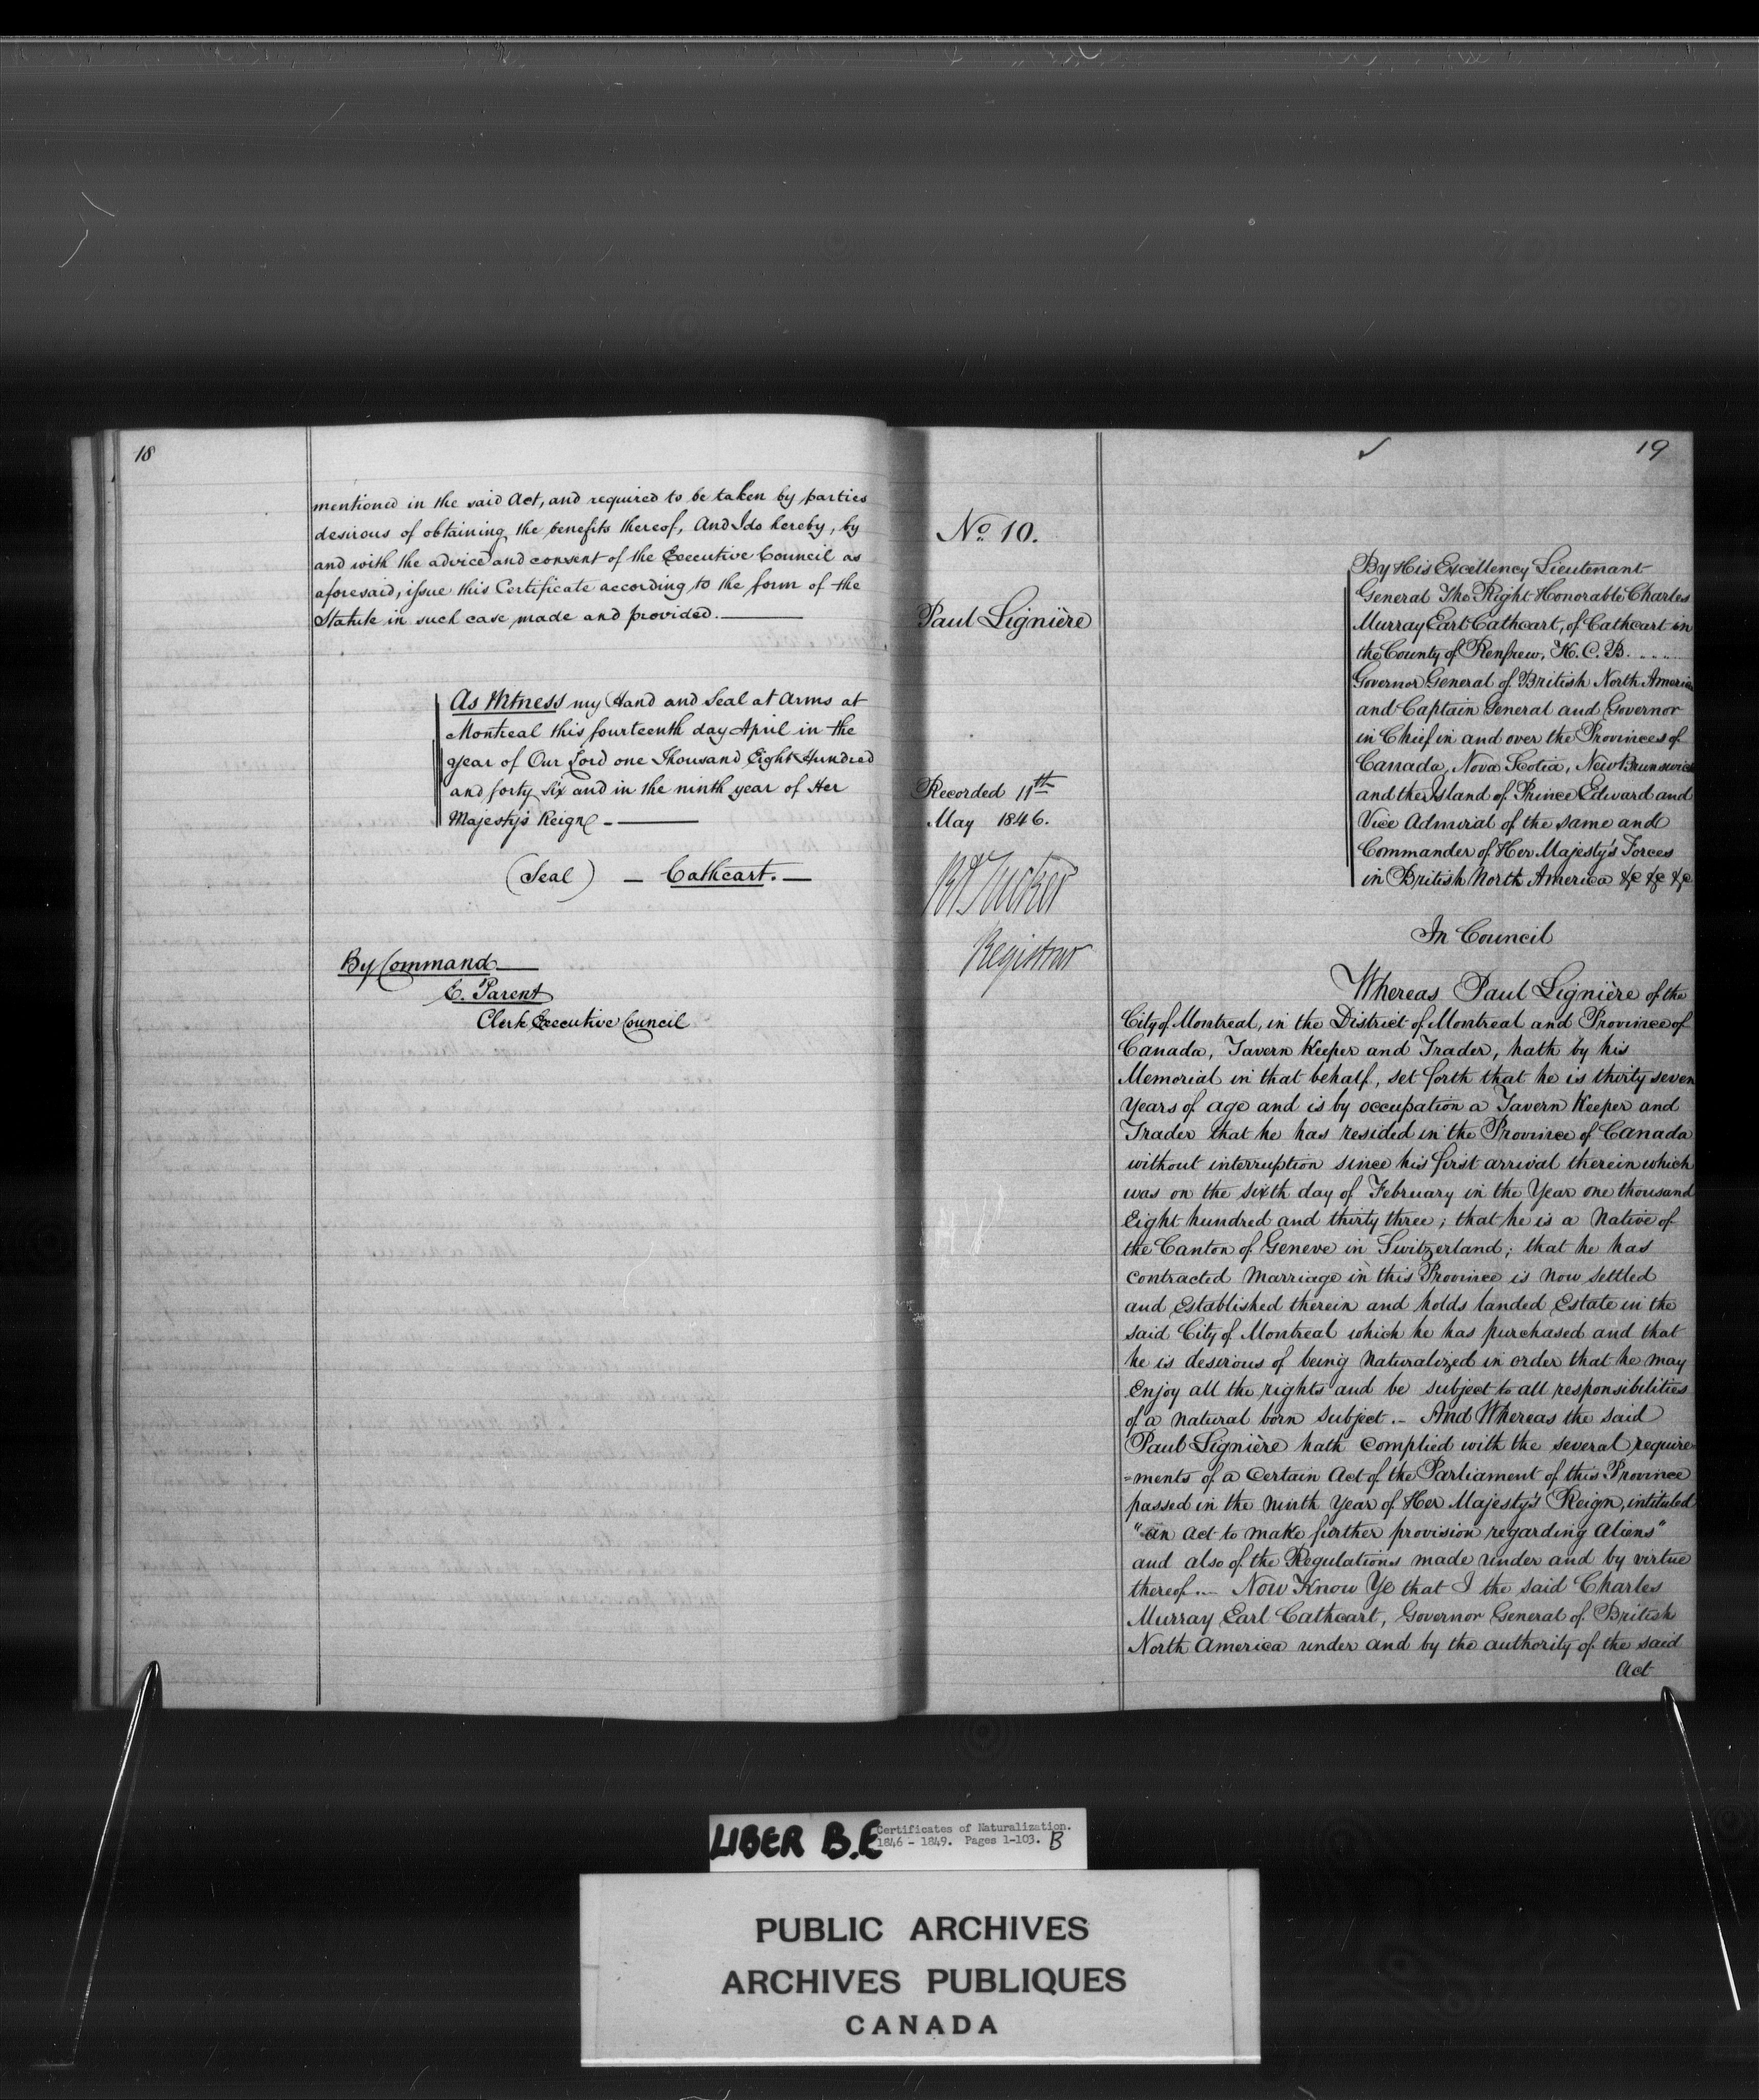 18
mentioned in the said Act, and required to be taken by parties
desirous of obtaining the benefits thereof, And I do hereby, by
and with the advice and consent of the Executive Council as
aforesaid, issue this Certificate according to the form of the
Statute in such case made and provided.
As Witness my Hand and Seal at Arms at
Montreal this fourteenth day April in the
year of Our Lord one Thousand Eight Hundred
and forty six and in the ninth year of Her
Majesty's Reign
(Seal) — Cathcart. —
By Command
E. Parent
Clerk Executive Council
19
No 10.
Paul Lignière
Recorded 11th
May 1846.
RA Tucker
Registrar
By His Excellency Lieutenant
General The Right Honorable Charles
Murray Earl Cathcart, of Cathcart in
the County of Renfrew, K.C.B. ....
Governor General of British North America
and Captain General and Governor
in Chief in and over the Provinces of
Canada, Nova Scotia, New Brunswick
and the Island of Prince Edward and
Vice Admiral of the same and
Commander of Her Majesty's Forces
in British North America &c &c &c
In Council
Whereas Paul Lignière of the
City of Montreal, in the District of Montreal and Province of
Canada, Tavern Keeper and Trader, hath by his
Memorial in that behalf, set forth that he is thirty seven
Years of age and is by occupation a Tavern Keeper and
Trader that he has resided in the Province of Canada
without interruption since his first arrival therein which
was on the sixth day of February in the Year one thousand
Eight hundred and thirty three; that he is a Native of
the Canton of Geneve in Switzerland; that he has
contracted Marriage in this Province is now settled
and Established therein and holds landed Estate in the
said City of Montreal which he has purchased and that
he is desirous of being Naturalized in order that he may
Enjoy all the rights and be subject to all responsibilities
of a natural born Subject. – And Whereas the said
Paul Lignière hath complied with the several require-
=ments of a Certain Act of the Parliament of this Province
passed in the ninth Year of Her Majesty's Reign, intituled
"an Act to make further provision regarding Aliens"
and also of the Regulations made under and by virtue
thereof. — Now Know Ye that I the said Charles
Murray Earl Cathcart, Governor General of British
North America under and by the authority of the said
Act
LIBER B.E
Certificates of Naturalization.
1846 - 1849. Pages 1-103. B
PUBLIC ARCHIVES
ARCHIVES PUBLIQUES
CANADA